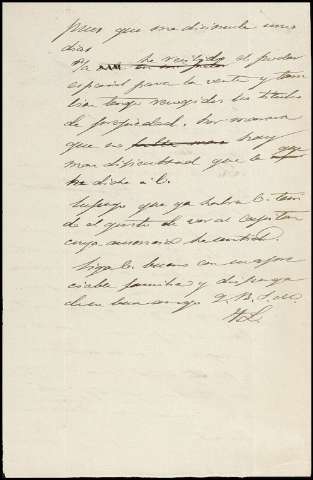 pues que me disimule unos
dias
Ya he recibido el poder
especial para la venta y tam
bien tengo recogidos los titulos
de propiedad. Por manera
que no hay
mas dificultad que la que
he dicho á V.
Supongo que ya habrá V. teni
do el gusto de ver al Capitan
cuya ausencia he sentido.
Siga V. bueno con su apre
ciable familia y disponga
de su buen amigo q. B. S. M.